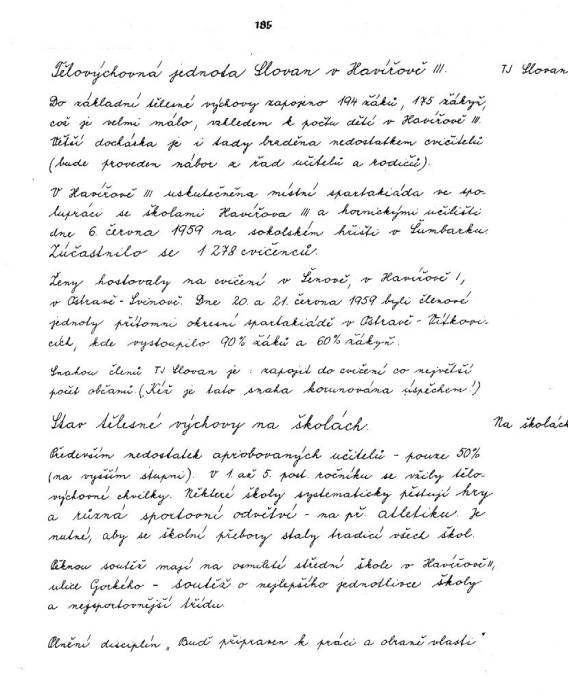 185
Tělovýchovná jednota Slovan v Havířově III. TJ Slovan
Do základní tělesné výchovy zapojeno 194 žáků, 175 žákyň,
což je velmi málo, vzhledem k počtu dětí v Havířově III.
Větší docházka je i tady brzděna nedostatkem cvičitelů
(bude proveden nábor z řad učitelů a rodičů).
V Havířově III uskutečněna místní spartakiáda ve spo-
lupráci se školami Havířova III a hornickými učilišti
dne 6. června 1959 na sokolském hřišti v Šumbarku.
Zúčastnilo se 1 278 cvičenců.
Ženy hostovaly na cvičení v Šenově, v Havířově I,
v Ostravě-Svinově. Dne 20. a 21. června 1959 byli členové
jednoty přítomni okresní spartakiádě v Ostravě-Vítkovi-
cích, kde vystoupilo 90% žáků a 60% žákyň.
Snahou členů TJ Slovan je: zapojit do cvičení co největší
počet občanů. (Kéž je tato snaha korunována úspěchem!)
Stav tělesné výchovy na školách. Na školách
Především nedostatek aprobovaných učitelů - pouze 50%
(na vyšším stupni). V 1. až 5. post. ročníku se vžily tělo-
výchovné chvilky. Některé školy systematicky pěstují hry
a různá sportovní odvětví - na př. atletiku. Je
nutné, aby se školní přebory staly tradicí všech škol.
Pěknou soutěž mají na osmileté střední škole v Havířově II,
ulice Gorkého - soutěž o nejlepšího jednotlivce školy
a nejsportovnější třídu.
Plnění disciplín „Buď připraven k práci a obraně vlasti"